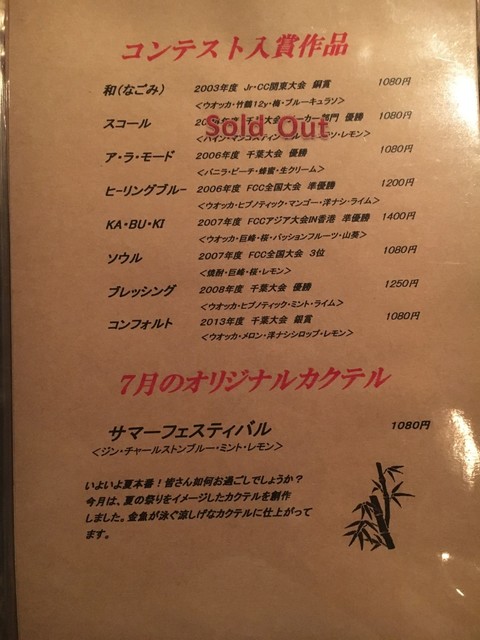 コンテスト入賞作品
和(なごみ) 2003年度 Jr・CC関東大会 銅賞 1080円
<ウオッカ・竹鶴12y・梅・ブルーキュラソ>
スコール 優勝 1080円
Sold Out
ア・ラ・モード 2006年度 千葉大会 優勝 1080円
<バニラ・ピーチ・蜂蜜・生クリーム>
ヒーリングブルー 2006年度 FCC全国大会 準優勝 1200円
<ウオッカ・ヒプノティック・マンゴー・洋ナシ・ライム>
KA・BU・KI 2007年度 FCCアジア大会IN香港 準優勝 1400円
<ウオッカ・巨峰・桜・パッションフルーツ・山葵>
ソウル 2007年度 FCC全国大会 3位 1080円
<焼酎・巨峰・桜・レモン>
ブレッシング 2008年度 千葉大会 優勝 1250円
<ウオッカ・ヒプノティック・ミント・ライム>
コンフォルト 2013年度 千葉大会 銀賞 1080円
<ウオッカ・メロン・洋ナシシロップ・レモン>
7月のオリジナルカクテル
サマーフェスティバル 1080円
<ジン・チャールストンブルー・ミント・レモン>
いよいよ夏本番!皆さん如何お過ごしでしょうか?
今月は、夏の祭りをイメージしたカクテルを創作
しました。金魚が泳ぐ涼しげなカクテルに仕上がって
ます。